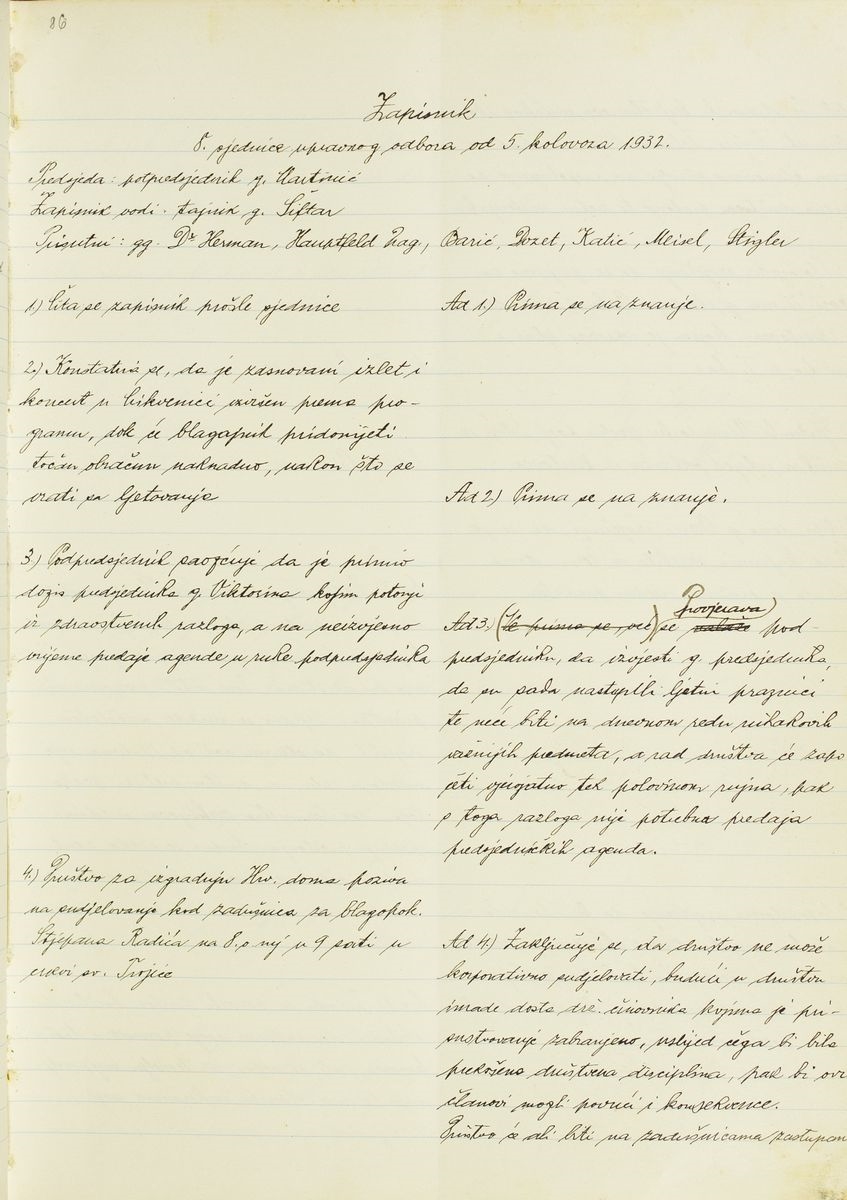 86
Zapisnik
8. sjednice upravnog odbora od 5. kolovoza 1932.
Predsjeda: potpredsjednik g. Martinić
Zapisnik vodi: tajnik g. Šiftar
Prisutni: gg. Dr. Herman, Hauptfeld Zag., Barić, Dozet, Katić, Meisel, Stigler
1) Čita se zapisnik prošle sjednice
Ad 1.) Prima se na znanje.
2.) Konstatira se, da je zasnovani izlet i
koncert u Crikvenici izvršen prema pro-
gramu, dok će blagajnik pridonijeti
točan obračun naknadno, nakon što se
vrati sa ljetovanja
Ad 2.) Prima se na znanje.
3.) Podpredsjednik saopćuje da je primio
dopis predsjednika g. Viktorina kojim potonji
iz zdravstvenih razloga, a na neizvjesno
vrijeme predaje agende u ruke podpredsjednika
Ad 3.) (Ne prima se, već) se nalaže Povjerava) pod-
predsjedniku, da izvjesti g. predsjednika,
da su sada nastupili ljetni praznici
te neće biti na dnevnom redu nikakovih
važnijih predmeta, a rad društva će zapo
četi opsjatno tek polovinom rujna, pak
s toga razloga nije potrebna predaja
predsjedničkih agenda.
4.) Društvo za izgradnju Hrv. doma poziva
na sudjelovanje kod zadušnica za blagopok.
Stjepana Radića na 8. o mj u 9 sati u
crkvi sv. Trojice
Ad 4.) Zaključuje se, da društvo ne može
korporativno sudjelovati, budući u društvu
imade dosta drž. činovnika kojima je pri-
sustvovanje zabranjeno, uslijed čega bi bila
prekršena društvena disciplina, pak bi ovi
članovi mogli povući i konsekvence.
Društvo će ali biti na zadušnicama zastupan